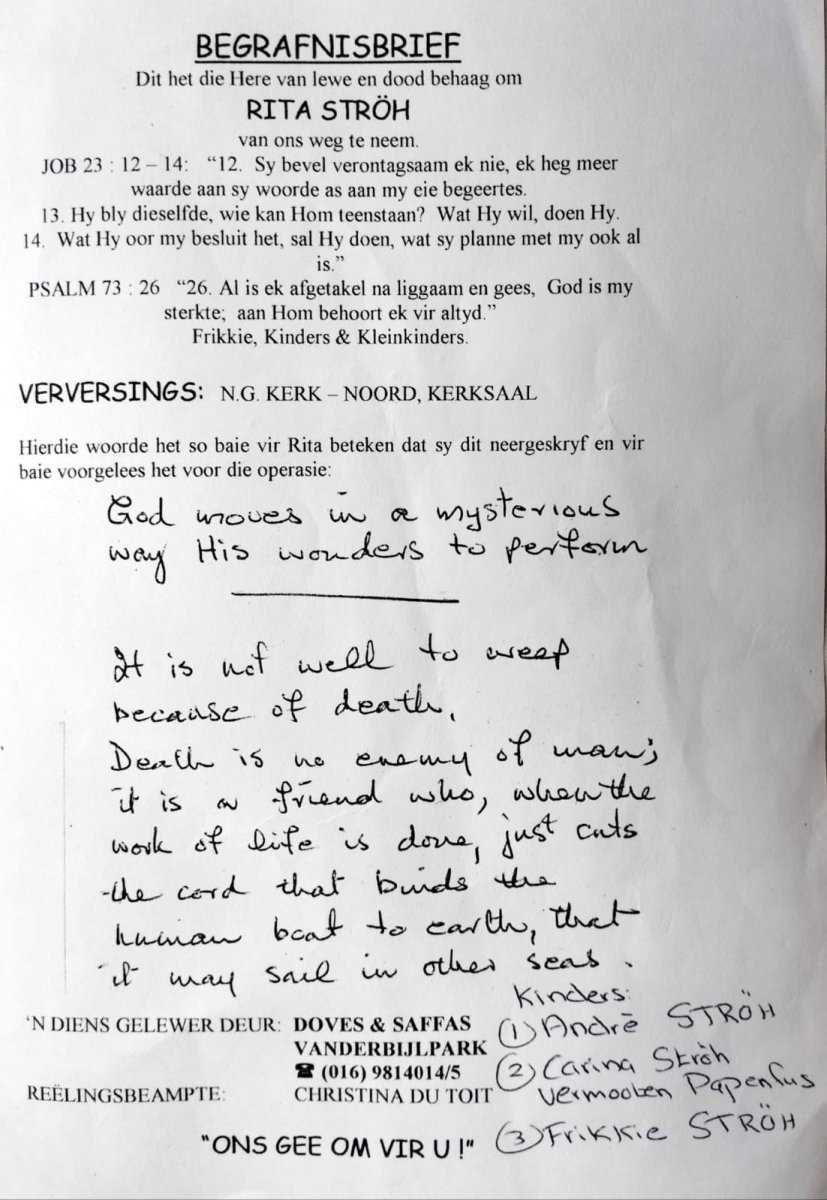 BEGRAFNISBRIEF
Dit het die Here van lewe en dood behaag om
RITA STRÖH
van ons weg te neem.
JOB 23 : 12 – 14: “12. Sy bevel verontagsaam ek nie, ek heg meer
waarde aan sy woorde as aan my eie begeertes.
13. Hy bly dieselfde, wie kan Hom teenstaan? Wat Hy wil, doen Hy.
14. Wat Hy oor my besluit het, sal Hy doen, wat sy planne met my ook al
is.”
PSALM 73 : 26 “26. Al is ek afgetakel na liggaam en gees, God is my
sterkte; aan Hom behoort ek vir altyd.”
Frikkie, Kinders & Kleinkinders.
VERVERSINGS: N.G. KERK – NOORD, KERKSAAL
Hierdie woorde het so baie vir Rita beteken dat sy dit neergeskryf en vir
baie voorgelees het voor die operasie:
God moves in a mysterious
way His wonders to perform
It is not well to weep
because of death.
Death is no enemy of man;
it is a friend who, when the
work of life is done, just cuts
the cord that binds the
human boat to earth, that
it may sail in other seas.
Kinders:
(1) Andrè STRÖH
(2) Carina Ströh
Vermooten Papenfus
(3) Frikkie STRÖH
'N DIENS GELEWER DEUR: DOVES & SAFFAS
VANDERBIJLPARK
☎ (016) 9814014/5
REËLINGSBEAMPTE: CHRISTINA DU TOIT
"ONS GEE OM VIR U !"